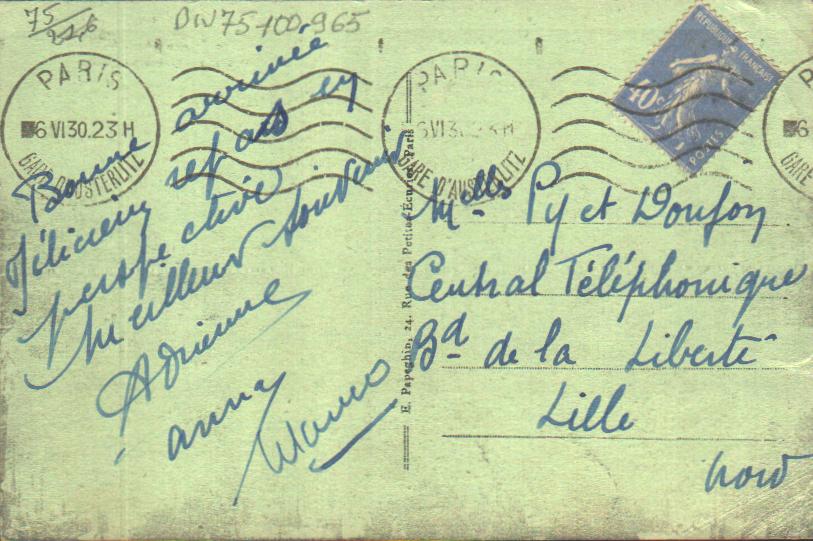 75
22,6
DW75-100-965
PARIS
6 VI 30.23H
GARE D'AUSTERLITZ
PARIS
6 VI 30.23H
GARE D'AUSTERLITZ
REPUBLIQUE FRANÇAISE
40c
POSTES
6
GARE
Bonne arrivée
repas en
perspective
Meilleur souvenir
Adrienne
anny
E. Papeghin, 24, Rue des Petites-Ecuries, Paris
Melles Py et
Central Téléphonique
Bd de la Liberté
Lille
Nord